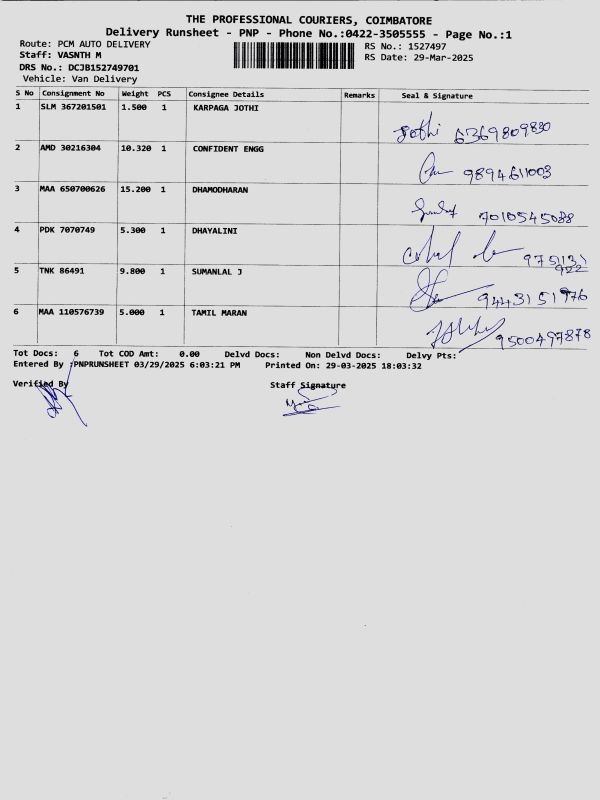 THE PROFESSIONAL COURIERS, COIMBATORE
Delivery Runsheet - PNP - Phone No.:0422-3505555 - Page No.:1
Route: PCM AUTO DELIVERY
Staff: VASNTH M
DRS No.: DCJB152749701
Vehicle: Van Delivery
RS No.: 1527497
RS Date: 29-Mar-2025
S No Consignment No Weight PCS Consignee Details Remarks Seal & Signature
1 SLM 367201501 1.500 1 KARPAGA JOTHI
Jothi 6369809830
2 AMD 30216304 10.320 1 CONFIDENT ENGG
9894611003
3 MAA 650700626 15.200 1 DHAMODHARAN
7010545088
4 PDK 7070749 5.300 1 DHAYALINI
975131
922
5 TNK 86491 9.800 1 SUMANLAL J
9443151976
6 MAA 110576739 5.000 1 TAMIL MARAN
9500497878
Tot Docs: 6 Tot COD Amt: 0.00 Delvd Docs: Non Delvd Docs: Delvy Pts:
Entered By :PNPRUNSHEET 03/29/2025 6:03:21 PM Printed On: 29-03-2025 18:03:32
Verified By Staff Signature